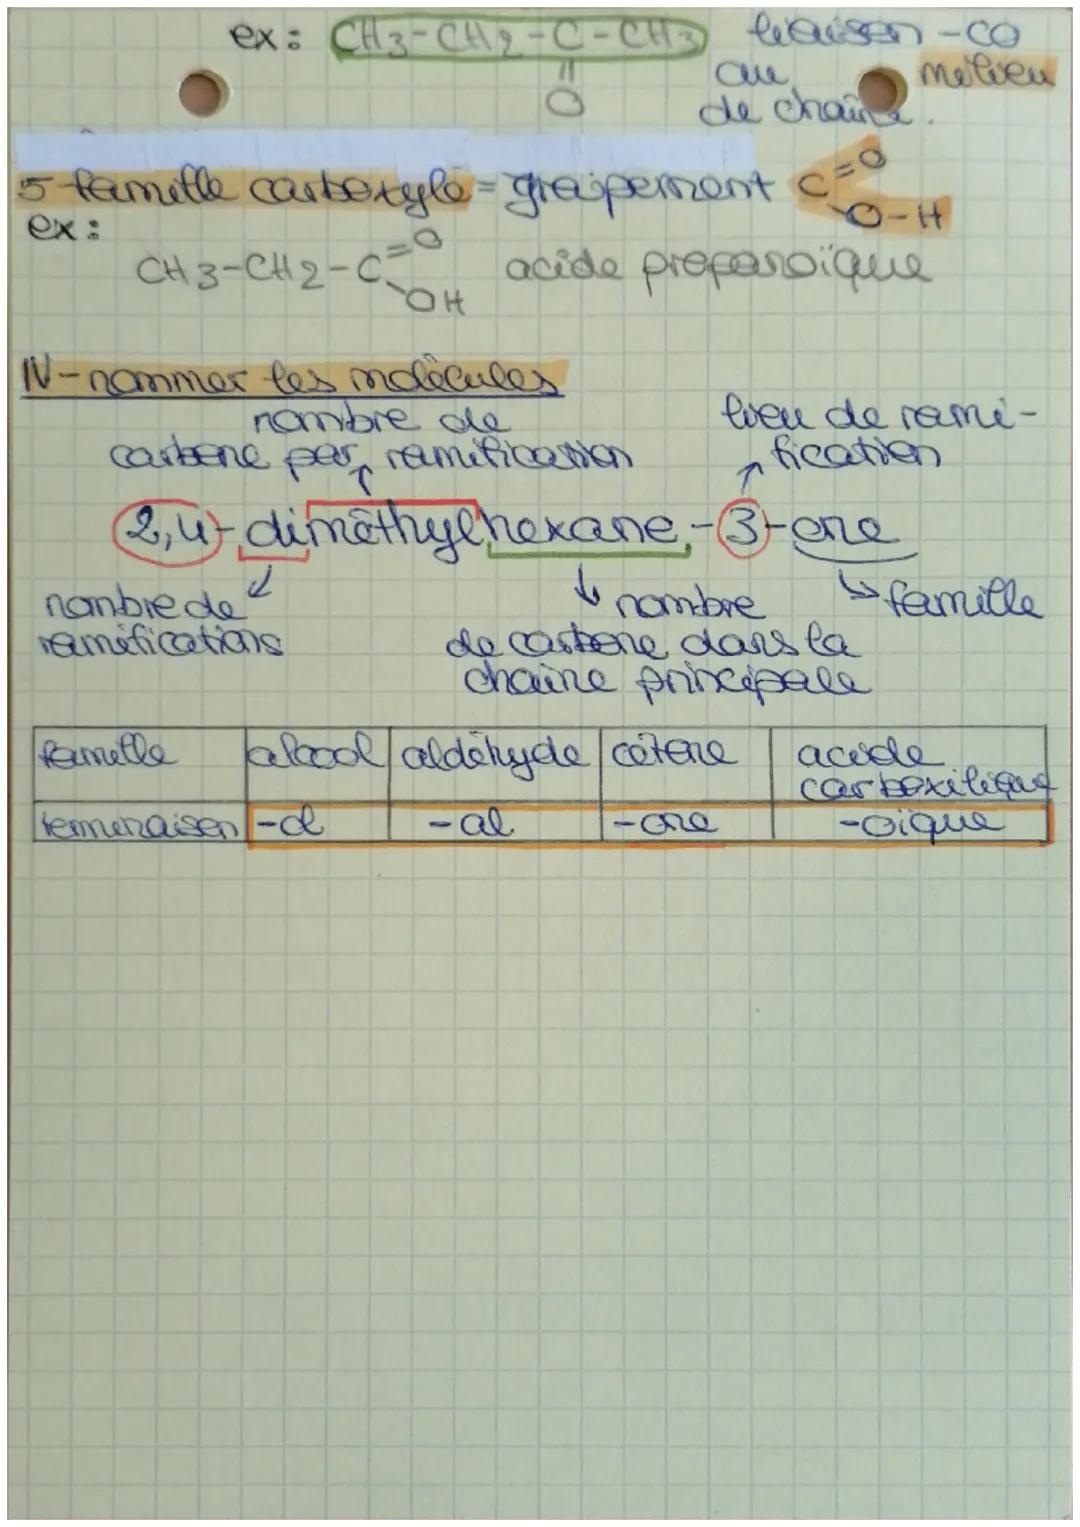 ex: CH3-CH2-C-CH3 liaison -CO
||
O
au milieu
de chaîne.
5-famille carboxyle = groupement C=O
O-H
ex:
CH3-CH2-C=O acide propanoïque
OH
IV-nommer les molécules
nombre de
carbone par ramification
lieu de rami-
fication
2,4-diméthylhexane-3-one
nombre de
ramifications
nombre
de carbone dans la
chaine principale
famille
famille alcool aldéhyde cétone acide
carboxilique
terminaison -ol -al -one -oïque